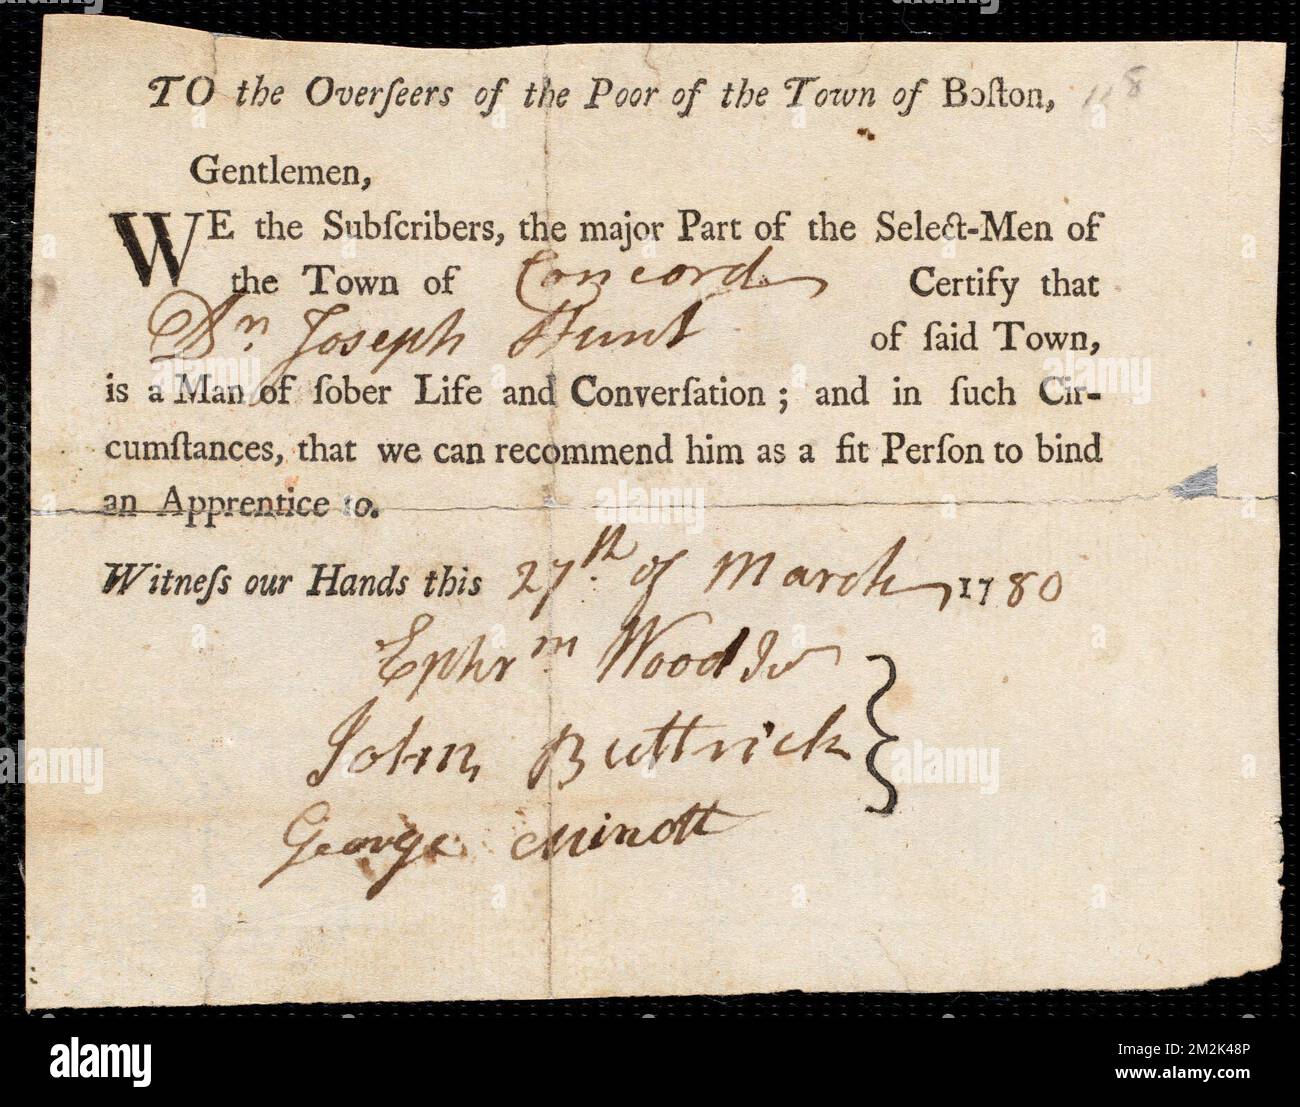 TO the Overſeers of the Poor of the Town of Boſton, 118
Gentlemen,
WE the Subſcribers, the major Part of the Select-Men of
the Town of Concord Certify that
Dn. Joseph Hunt of ſaid Town,
is a Man of ſober Life and Converſation; and in ſuch Cir-
cumſtances, that we can recommend him as a fit Perſon to bind
an Apprentice to.
Witneſs our Hands this 27th. of March 1780
Ephrm Wood Jr
John Buttrick
George Minott
alamy
Image ID: 2M2K48P
www.alamy.com